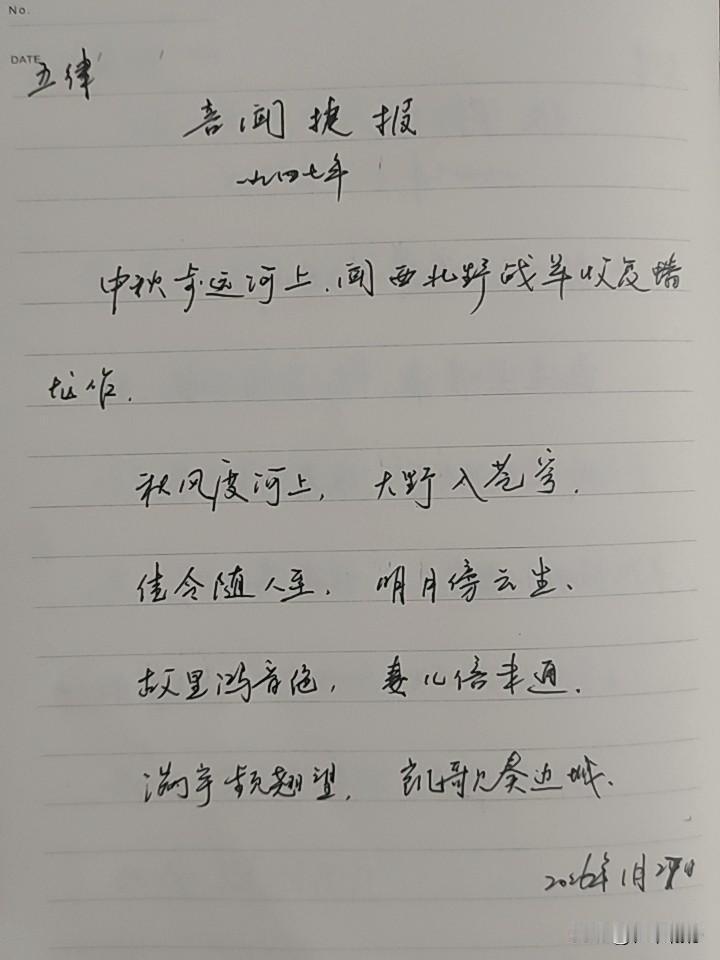 No.
DATE
五律
喜闻捷报
一九四七年
中秋步运河上，闻西北野战军收复蟠
龙作.
秋风度河上, 大野入苍穹.
佳令随人至, 明月傍云生、
故里鸿音绝, 妻儿信未通.
满宇频翘望, 凯歌奏边城、
2026年1月27日